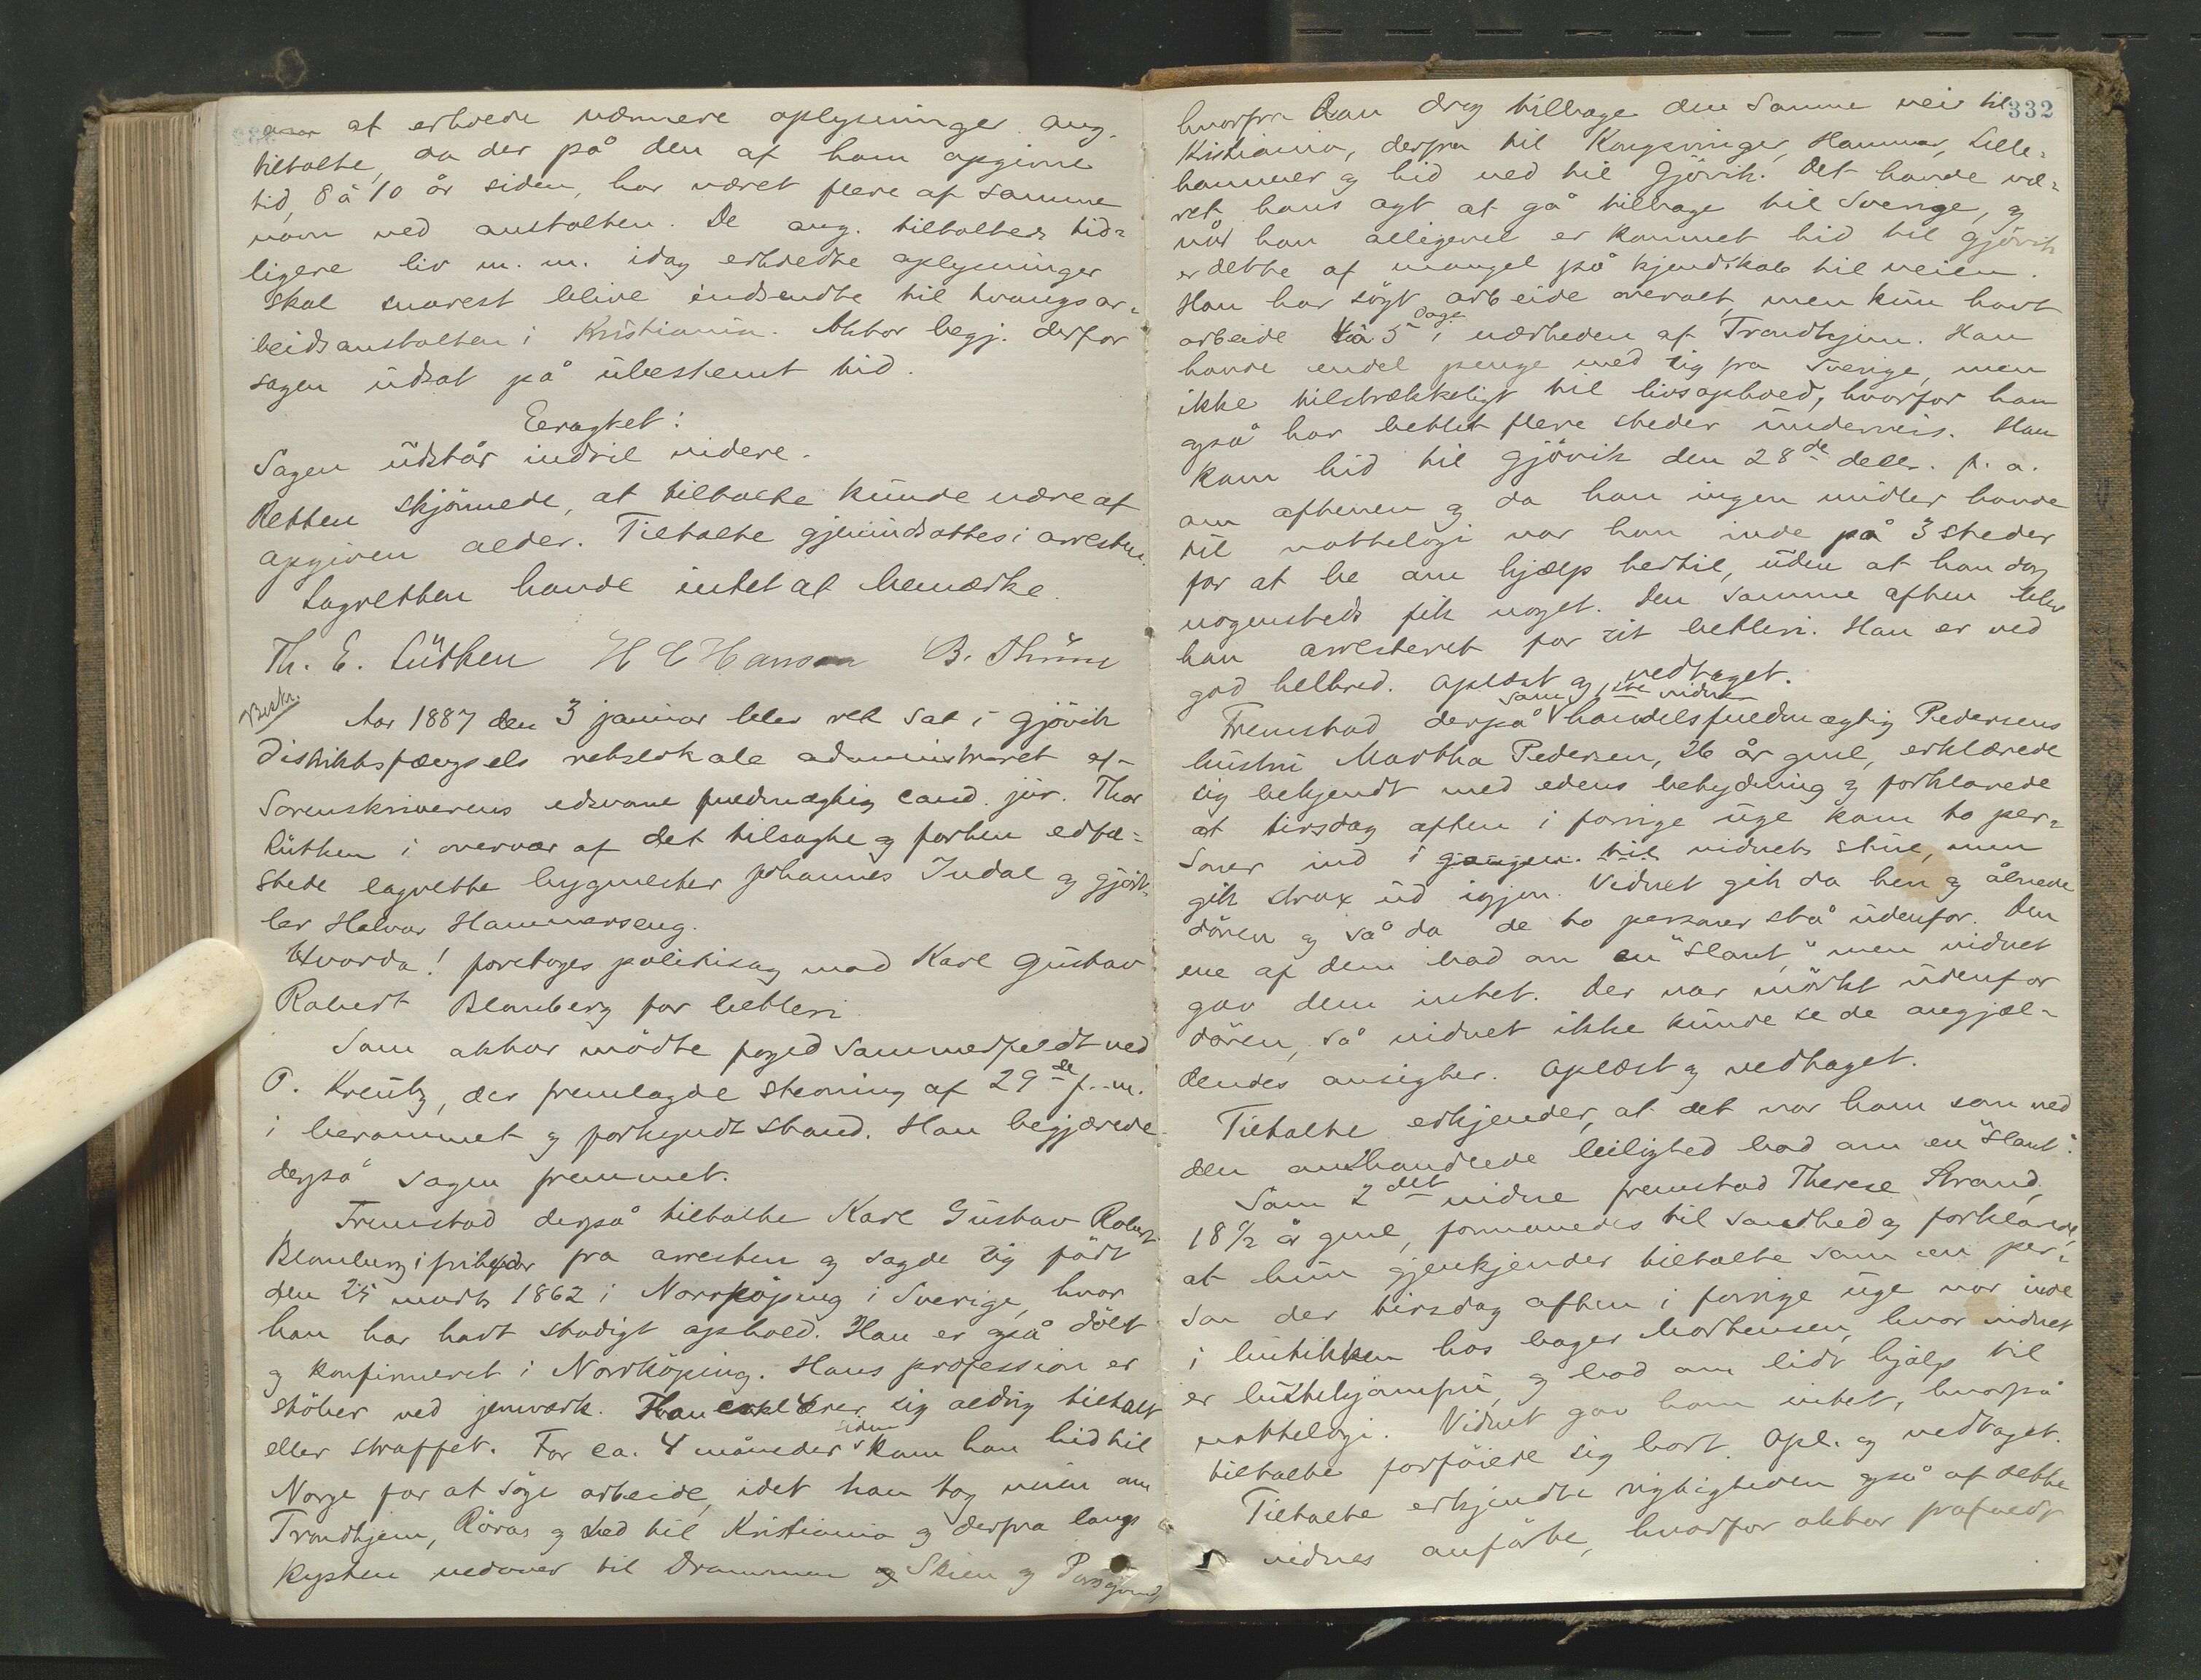 at erholde nærmere oplysninger ang.
tiltalte, da der på den af ham opgivne
tid, 8 à 10 år siden, har været flere af samme
navn ved anstalten. De ang. tiltaltes tid-
ligere liv m. m. idag erholdte oplysninger
skal snarest blive indsendte til tvangsar-
beidsanstalten i Kristiania. Aktor begj. derfor
sagen udsat på ubestemt tid.
Eragtet:
Sagen udstår indtil videre.
Retten skjønnede, at tiltalte kunde være af
opgiven alder. Tiltalte gjenindsattes i arresten.
Lagretten havde intet at bemærke.
Th. E. Lütken H C Hansen B. Thune
Beskr.
Aar 1887 den 3 januar blev ret sat i Gjövik
distriktsfængsels retslokale administreret af
Sorenskriverens edsvorne fuldmægtig cand. jur. Thor
Lütken i overvær af det tilsagte og forhen edfæ-
stede lagrette bygmester Johannes Indal og gjört-
ler Halvor Hammerseng.
Hvorda! foretoges politisag mod Karl Gustav
Robert Blomberg for betleri
Som aktor mödte foged Sommerfeldt ved
O. Kreutz, der fremlagde stevning af 29de f. m.
i berammet og forkyndt stand. Han begjærede
derpå sagen fremmet.
Fremstod derpå tiltalte Karl Gustav Robert
Blomberg i frihed fra arresten og sagde sig födt
den 25 marts 1862 i Norrköping i Sverige, hvor
han har havt stadigt ophold. Han er også döbt
og konfirmeret i Norrköping. Hans profession er
stöber ved jernværk. Han erklærer sig aldrig tiltalt
eller straffet. For ca. 4 måneder siden kom han hid til
Norge for at söge arbeide, idet han tog veien om
Trondhjem, Röros og ned til Kristiania og derfra langs
kysten nedover til Drammen og Skien og Porsgrund,
332
hvorfra han drog tilbage den samme vei til
Kristiania, derfra til Kongsvinger, Hammer, Lille-
hammer og hid ned til Gjövik. Det havde væ-
ret hans agt at gå tilbage til Sverige, og
når han alligevel er kommet hid til Gjövik
er dette af mangel på kjendskab til veien.
Han har sögt arbeide overalt, men kun havt
arbeide 4 à 5 dage i nærheden af Trondhjem. Han
havde endel penge med sig fra Sverige, men
ikke tilstrækkeligt til livsophold, hvorfor han
også har betlet flere steder underveis. Han
kom hid til Gjövik den 28de decbr. f. a.
om aftenen og da han ingen midler havde
til nattelogi var han inde på 3 steder
for at be om hjælp hertil, uden at han dog
nogensteds fik noget. Den samme aften blev
han arresteret for sit betleri. Han er ved
god helbred. Oplæst og vedtaget.
Fremstod derpå som 1ste vidne handelsfuldmægtig Pedersens
hustru Martha Pedersen, 26 år gml, erklærede
sig bekjendt med edens betydning og forklarede
at tirsdag aften i forrige uge kom to per-
soner ind i gangen til vidnets stue, men
gik strax ud igjen. Vidnet gik da hen og åbnede
dören og så da de to personer stå udenfor. Den
ene af dem bad om en "slant," men vidnet
gav dem intet. Der var mörkt udenfor
dören, så vidnet ikke kunde se de angjæl-
dendes ansigter. Oplæst og vedtaget.
Tiltalte erkjender, at det var ham som ved
den omhandlede leilighed bad om en "slant".
Som 2det vidne fremstod Therese Strand,
18 1/2 år gml, formanedes til sandhed og forklarede,
at hun gjenkjender tiltalte som en per-
son der tirsdag aften i forrige uge var inde
i butikken hos bager Mortensen, hvor vidnet
er butikjomfru, og bad om lidt hjælp til
nattelogi. Vidnet gav ham intet, hvorpå
tiltalte forföiede sig bort. Opl. og vedtaget.
Tiltalte erkjendte rigtigheden også af dette
vidnes anförte, hvorfor aktor frafaldt